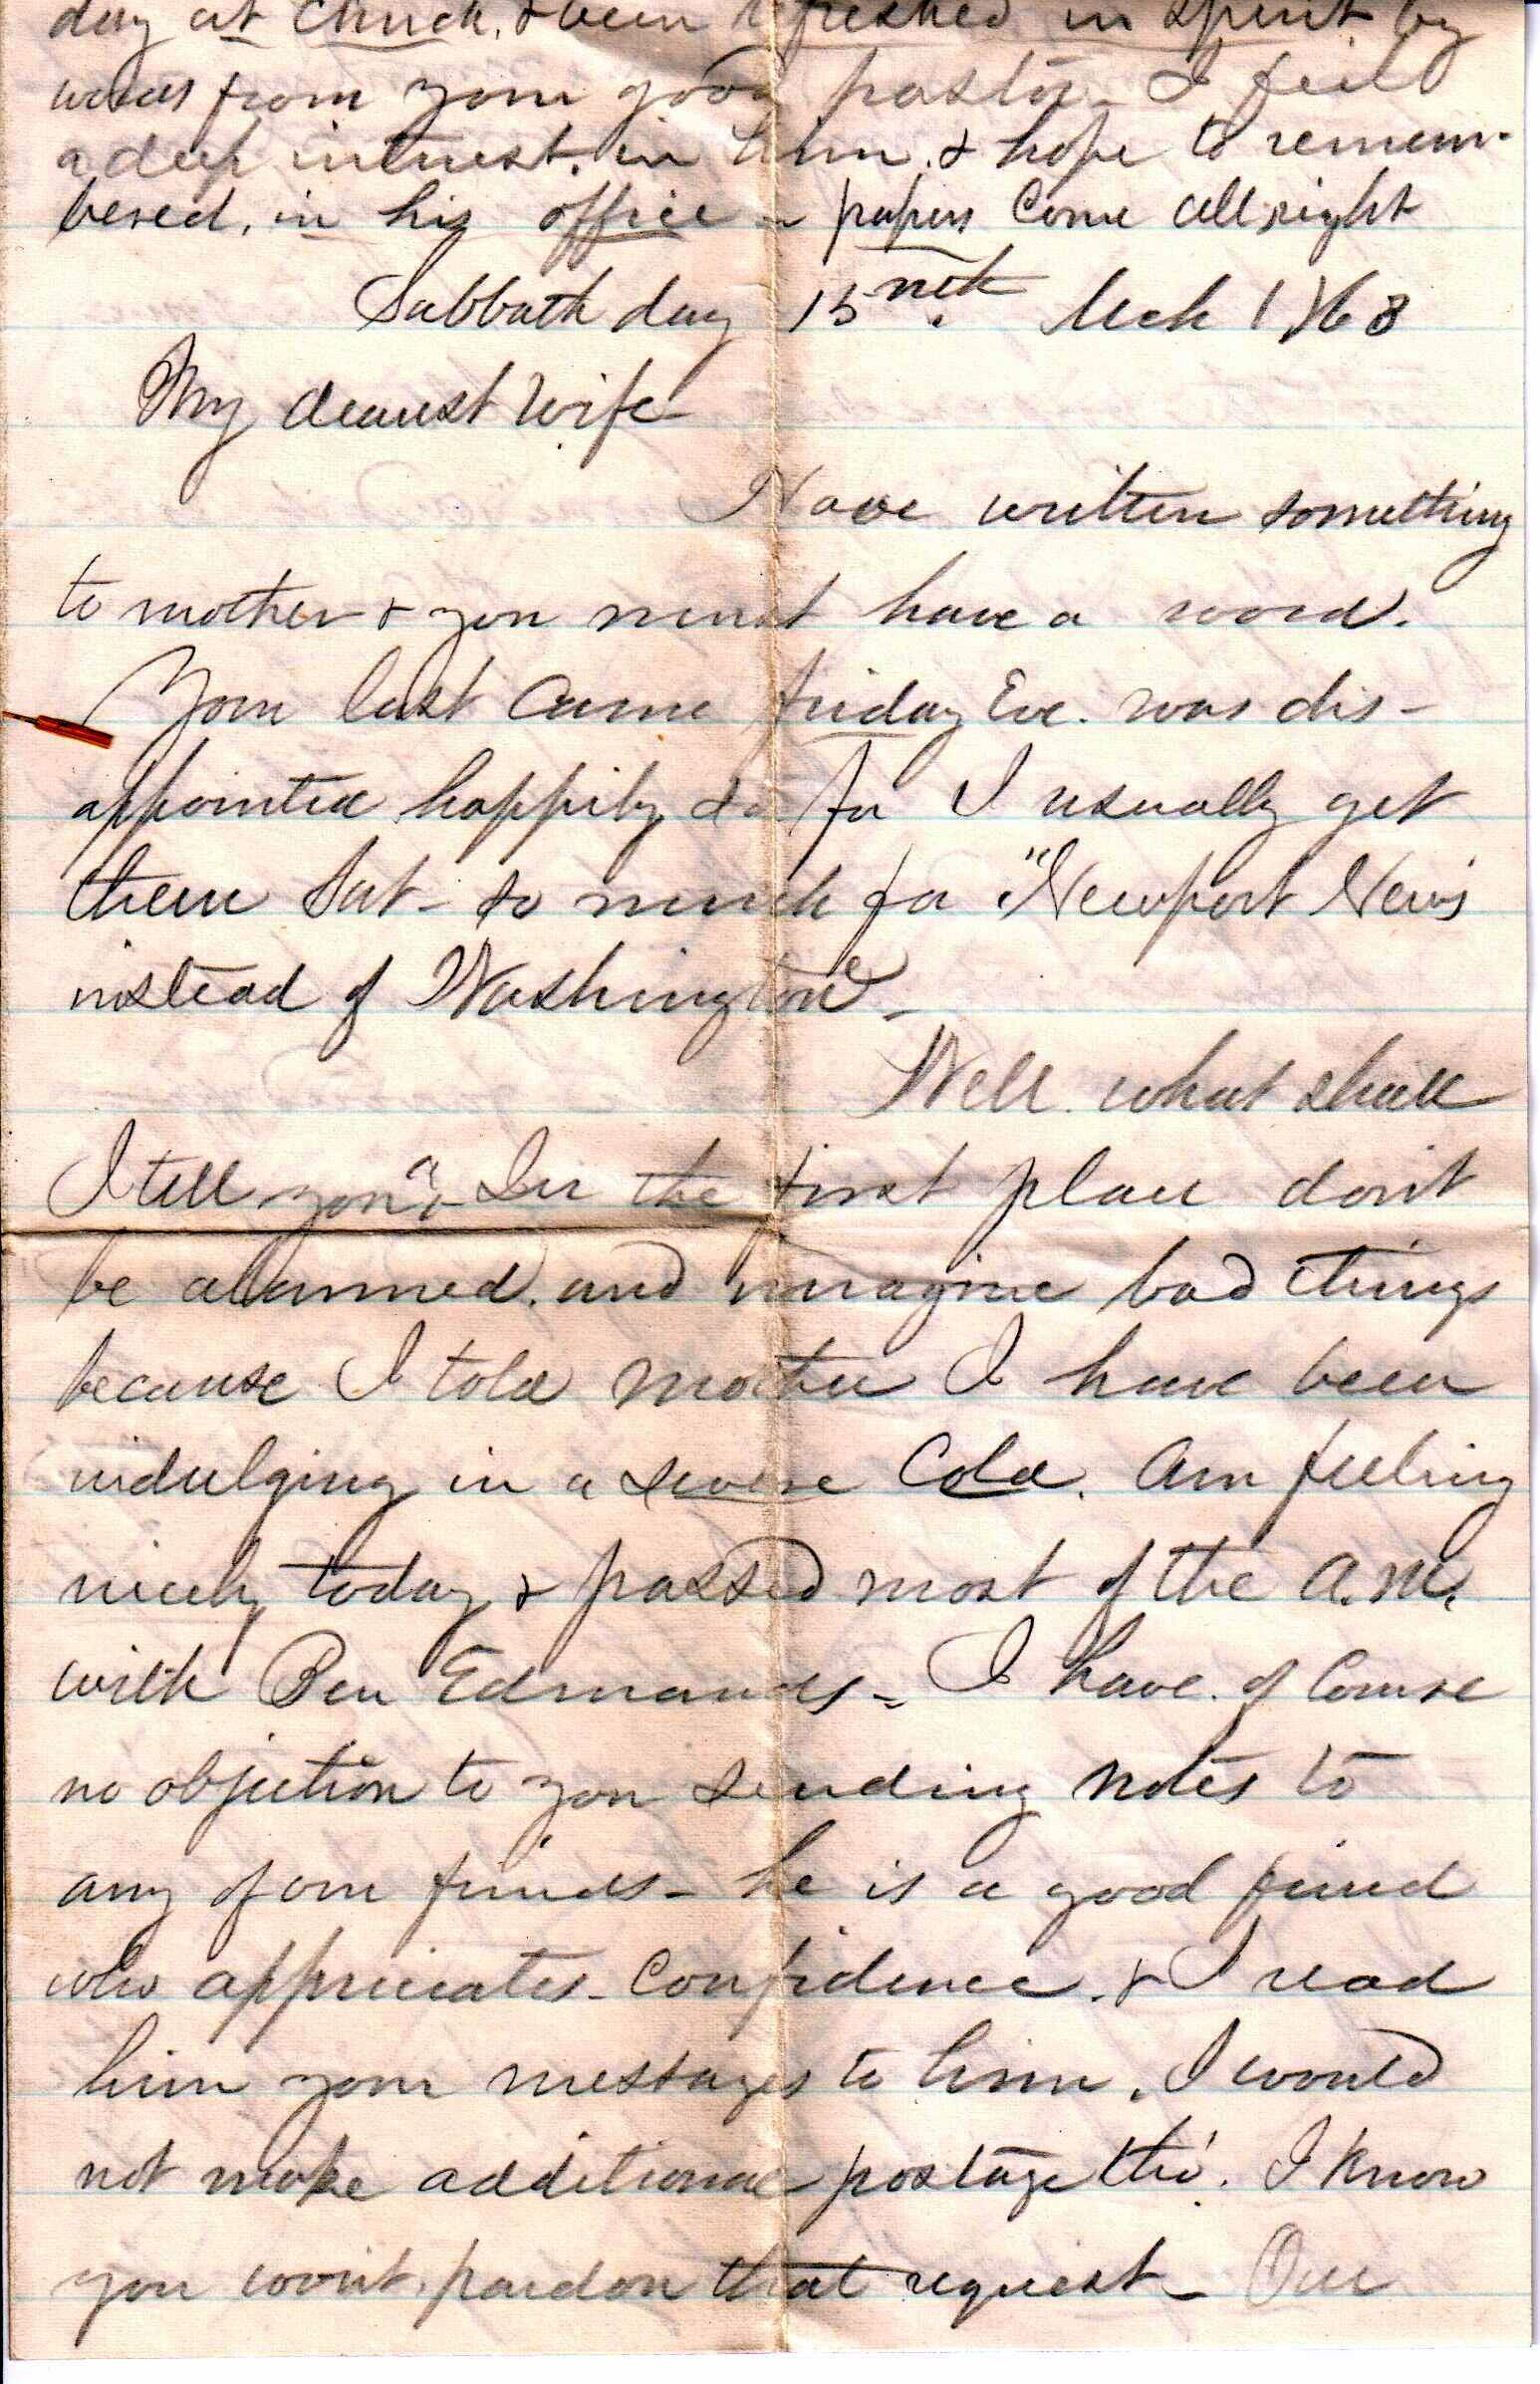 day at Church, & been refreshed in spirit by
words from your good pastor - I feel
a deep interest in him. & hope to remem-
bered, in his office - papers Come all right
Sabbath day 15 Mch 1863
My dearest Wife
Have written something
to mother & you must have a word.
Your last Came friday Eve. was dis-
appointed happily so for I usually get
them Sat - so much for "Newport News
instead of Washington -
Well. what shall
I tell you - In the first place don't
be alarmed. and imagine bad things
because I told mother I have been
indulging in a severe Cold. Am feeling
nicely today & passed most of the A.M.
with Ben Edmands - I have. of Course
no objection to you sending notes to
any of our friends - he is a good friend
who appreciates - Confidence. & I read
him your messages to him. I would
not make additional postage tho'. I know
you won't. pardon that request - Our